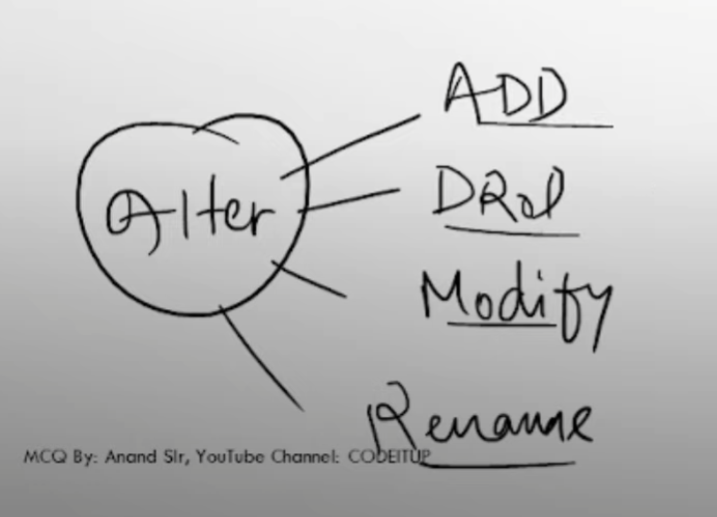 ADD
Alter
DRop
Modify
Rename
MCQ By: Anand Sir, YouTube Channel: CODEITUP